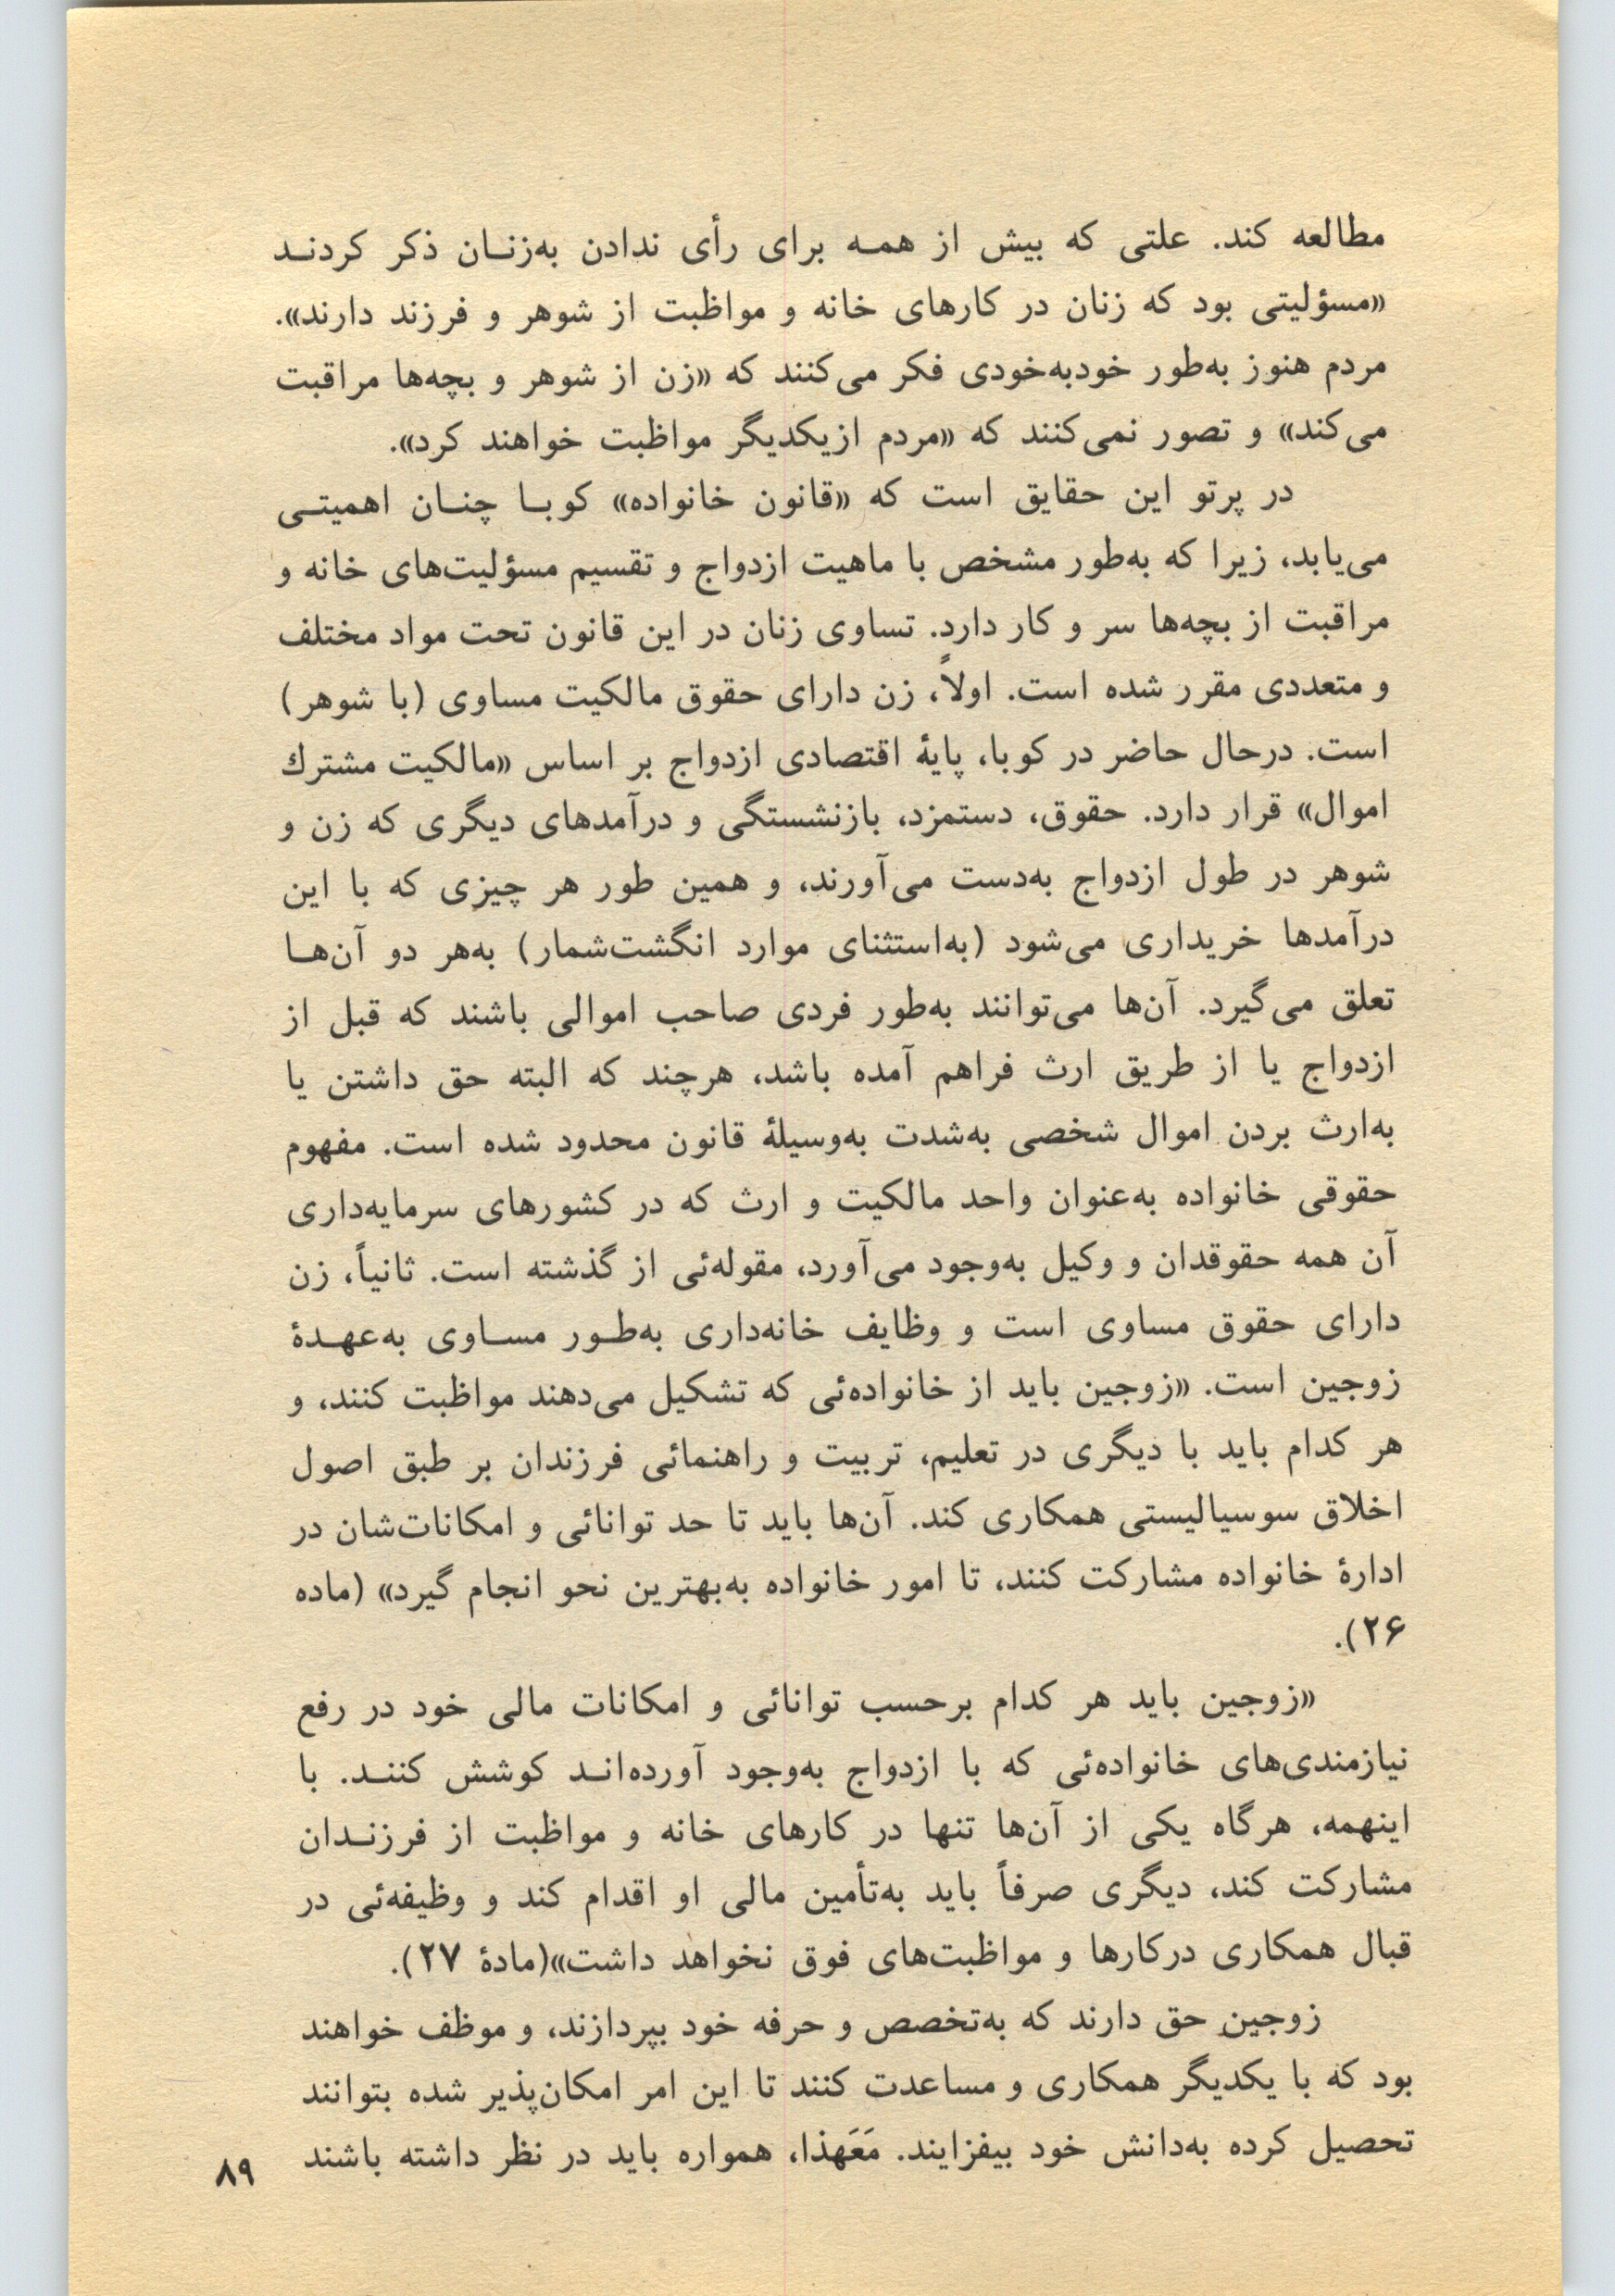 مطالعه کند. علتی که بیش از همه برای رأی ندادن به‌زنان ذکر کردند
«مسؤلیتی بود که زنان در کارهای خانه و مواظبت از شوهر و فرزند دارند».
مردم هنوز به‌طور خودبه‌خودی فکر می‌کنند که «زن از شوهر و بچه‌ها مراقبت
می‌کند» و تصور نمی‌کنند که «مردم ازیکدیگر مواظبت خواهند کرد».
در پرتو این حقایق است که «قانون خانواده» کوبا چنان اهمیتی
می‌یابد، زیرا که به‌طور مشخص با ماهیت ازدواج و تقسیم مسؤلیت‌های خانه و
مراقبت از بچه‌ها سر و کار دارد. تساوی زنان در این قانون تحت مواد مختلف
و متعددی مقرر شده است. اولاً، زن دارای حقوق مالکیت مساوی (با شوهر)
است. درحال حاضر در کوبا، پایۀ اقتصادی ازدواج بر اساس «مالکیت مشترك
اموال» قرار دارد. حقوق، دستمزد، بازنشستگی و درآمدهای دیگری که زن و
شوهر در طول ازدواج به‌دست می‌آورند، و همین طور هر چیزی که با این
درآمدها خریداری می‌شود (به‌استثنای موارد انگشت‌شمار) به‌هر دو آن‌ها
تعلق می‌گیرد. آن‌ها می‌توانند به‌طور فردی صاحب اموالی باشند که قبل از
ازدواج یا از طریق ارث فراهم آمده باشد، هرچند که البته حق داشتن یا
به‌ارث بردن اموال شخصی به‌شدت به‌وسیلۀ قانون محدود شده است. مفهوم
حقوقی خانواده به‌عنوان واحد مالکیت و ارث که در کشورهای سرمایه‌داری
آن همه حقوقدان و وکیل به‌وجود می‌آورد، مقوله‌ئی از گذشته است. ثانیاً، زن
دارای حقوق مساوی است و وظایف خانه‌داری به‌طور مساوی به‌عهدۀ
زوجین است. «زوجین باید از خانواده‌ئی که تشکیل می‌دهند مواظبت کنند، و
هر کدام باید با دیگری در تعلیم، تربیت و راهنمائی فرزندان بر طبق اصول
اخلاق سوسیالیستی همکاری کند. آن‌ها باید تا حد توانائی و امکانات‌شان در
ادارۀ خانواده مشارکت کنند، تا امور خانواده به‌بهترین نحو انجام گیرد» (ماده
۲۶).
«زوجین باید هر کدام برحسب توانائی و امکانات مالی خود در رفع
نیازمندی‌های خانواده‌ئی که با ازدواج به‌وجود آورده‌اند کوشش کنند. با
اینهمه، هرگاه یکی از آن‌ها تنها در کارهای خانه و مواظبت از فرزندان
مشارکت کند، دیگری صرفاً باید به‌تأمین مالی او اقدام کند و وظیفه‌ئی در
قبال همکاری درکارها و مواظبت‌های فوق نخواهد داشت»(مادۀ ۲۷).
زوجین حق دارند که به‌تخصص و حرفه خود بپردازند، و موظف خواهند
بود که با یکدیگر همکاری و مساعدت کنند تا این امر امکان‌پذیر شده بتوانند
تحصیل کرده به‌دانش خود بیفزایند. مَعَهذا، همواره باید در نظر داشته باشند
۸۹